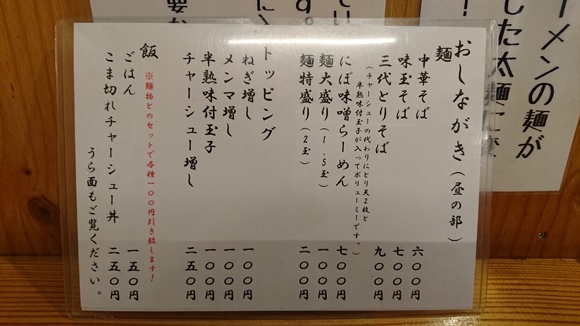 おしながき(昼の部)
麺
中華そば 六〇〇円
味玉そば 七〇〇円
三代とりそば 九〇〇円
(チャーシューの代わりにとり天2枚と
半熟味付玉子が入ってボリューミーです。)
にぼ味噌らーめん 七〇〇円
麺大盛り(1.5玉) 一〇〇円
麺特盛り(2玉) 二〇〇円
トッピング
ねぎ増し 一〇〇円
メンマ増し 一〇〇円
半熟味付玉子 一〇〇円
チャーシュー増し 二五〇円
飯
※麺物とのセットで各種一〇〇円引き致します!
ごはん 一五〇円
こま切れチャーシュー丼 二五〇円
うら面もご覧ください。
ーメンの麺が
した太麺に変